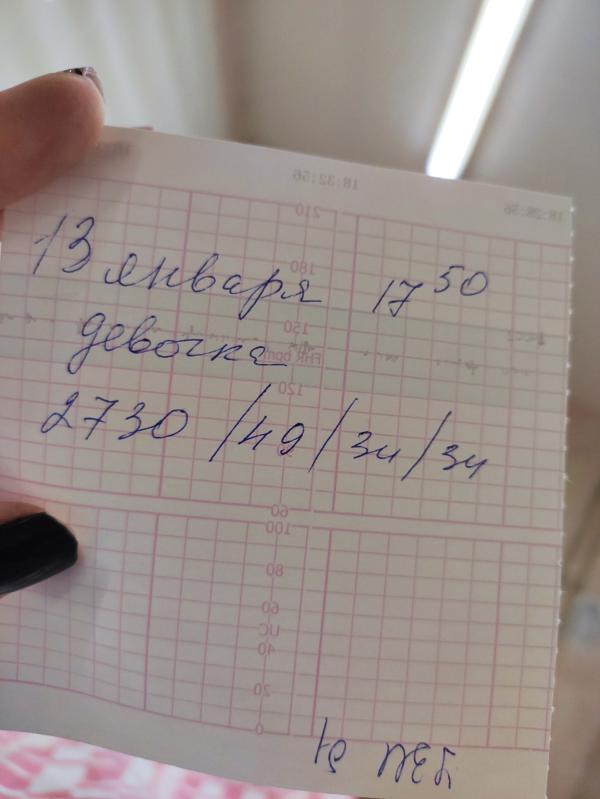 18:32:56
18:28:56
210
13 января 17 50
180
девочка
150
FHR bpm
120
2730 /49/34/34
60
100
80
60
UC
40
20
0